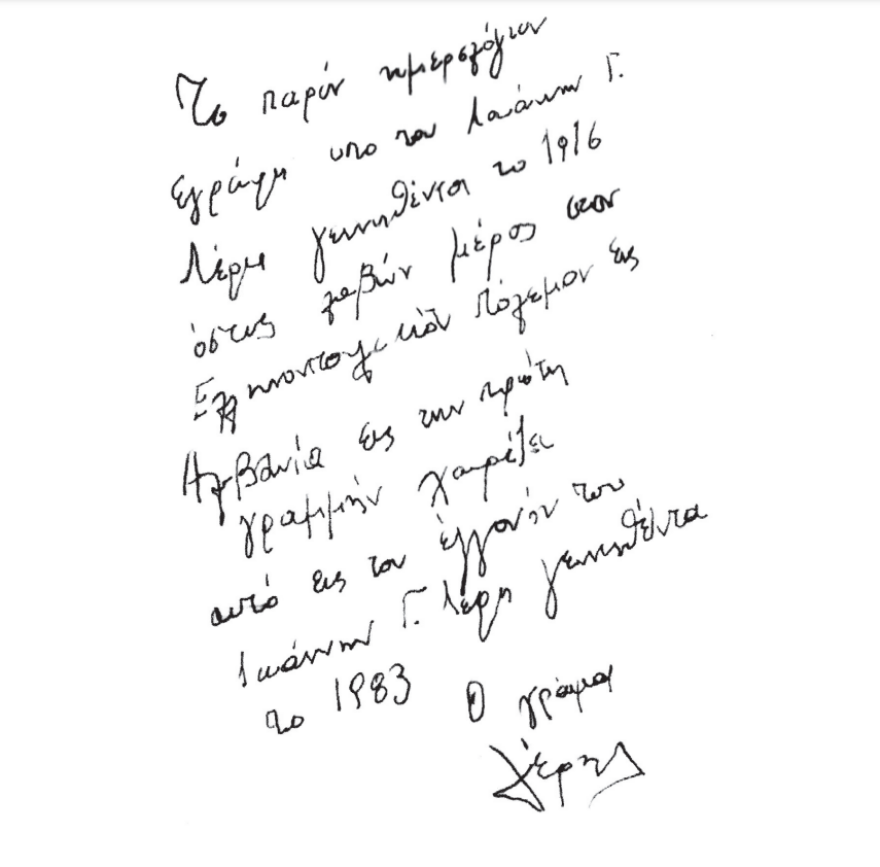 Το παρόν ημερολόγιον
εγράφη υπό του Ιωάννη Γ.
Λέρη γεννηθέντα το 1916
όστις λαβών μέρος στον
Ελληνοϊταλικόν Πόλεμον εις
Αλβανία εις την πρώτη
γραμμήν χαρίζει
αυτό εις τον έγγονόν του
Ιωάννην Γ. Λέρη γεννηθέντα
το 1983 Ο γράψας
Λέρης